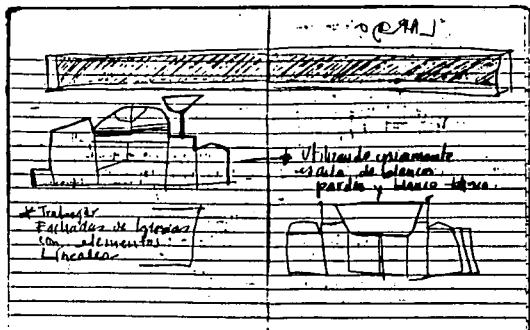 Utilizando unicamente
escala de blancos
pardos y blanco
* Trabajar
Fachadas de Iglesias
con elementos
Lineales